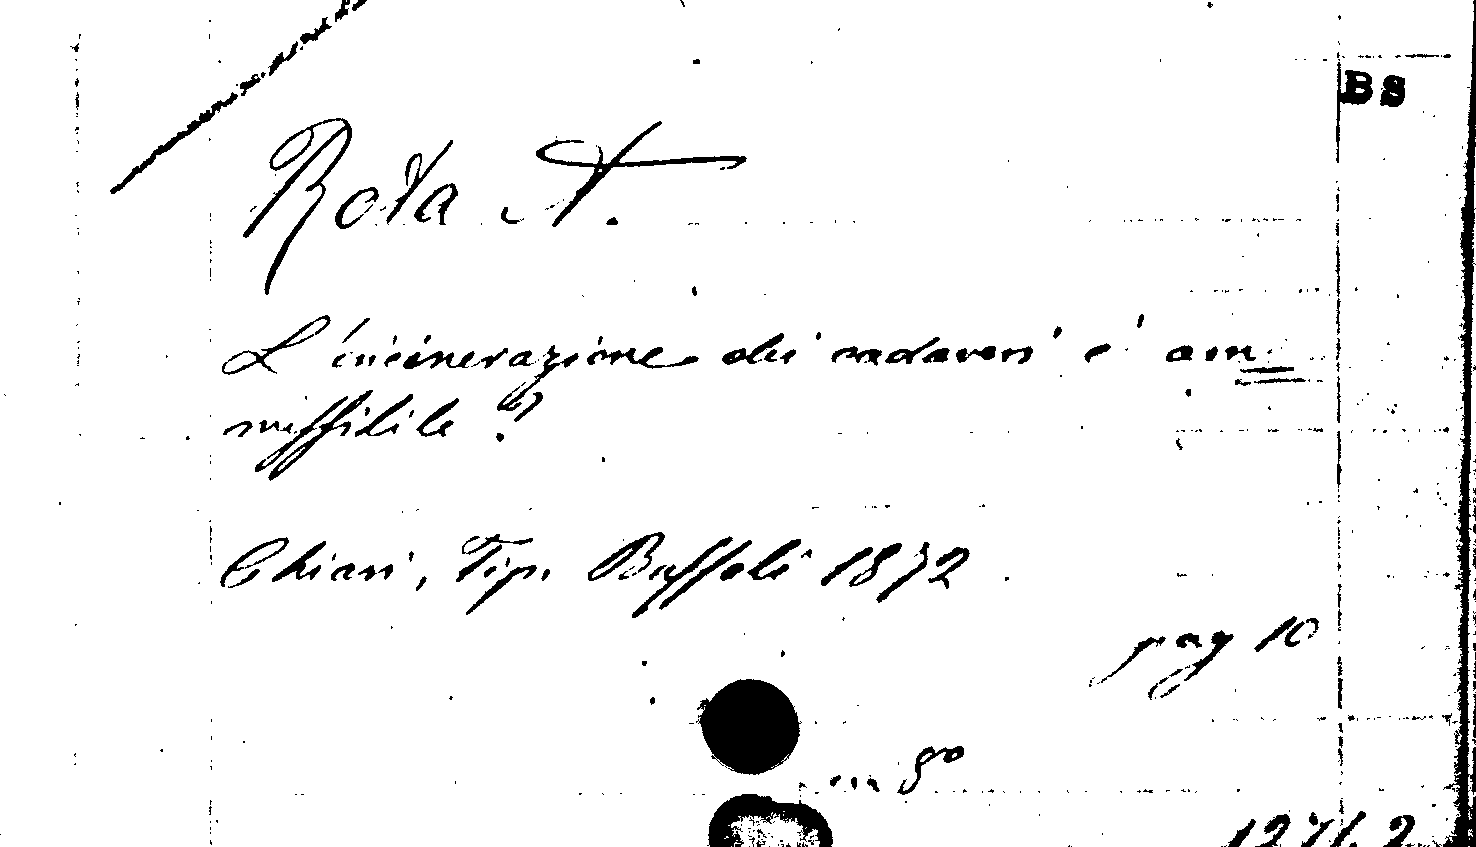 BS
Rota A.
L'incinerazione dei cadaveri è am=
missibile?
Chiari, Tip. Buffoli 1872
pag 10
in 8°